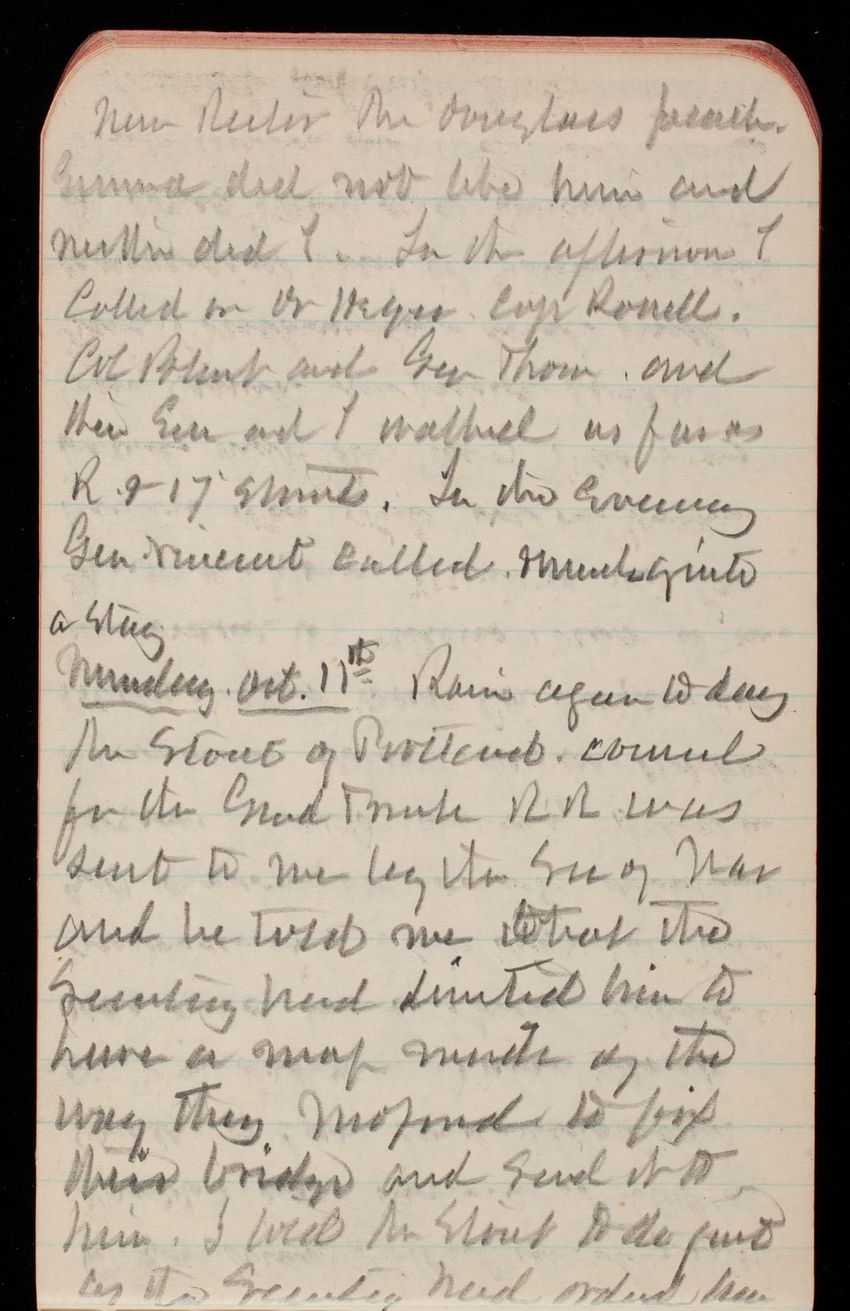 new Rector Mr Douglass preach.
Emma did not like him and
neither did I. In the afternoon I
Called on Dr Hegar Cap Rowell.
Col Blunt and Gen Thom. and
then Gen ad I walked as far as
R & 17 Streets. In the Evening
Gen Vincent called. made quite
a stay
Monday. Oct. 11th Rain again to day
Mr Stout of Portland. counsel
for the Grand Trunk R R was
sent to me by the Sec of War
and he told me that the
Secretary had directed him to
have a map made of the
way they proposed to fix
their bridge and send it to
him. I told Mr Stout to do just
as the Secretary had ordered him